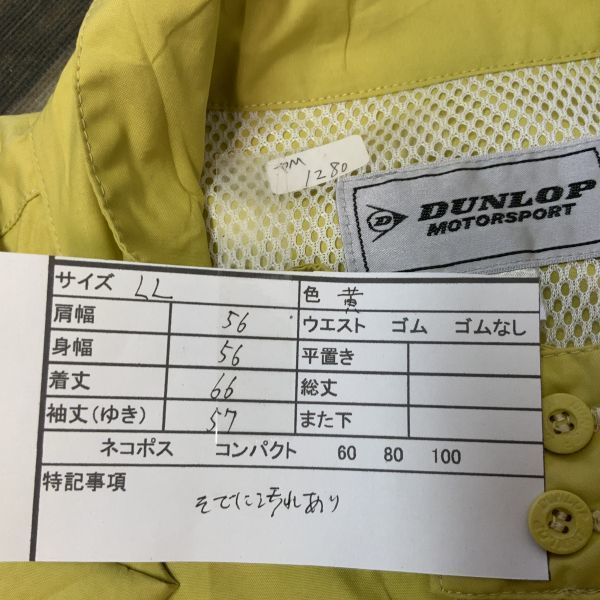 1280
DUNLOP
MOTORSPORT
サイズ LL 色 黄
肩幅 56 ウエスト ゴム ゴムなし
身幅 56 平置き
着丈 66 総丈
袖丈(ゆき) 57 また下
ネコポス コンパクト 60 80 100
特記事項
そでに汚れあり